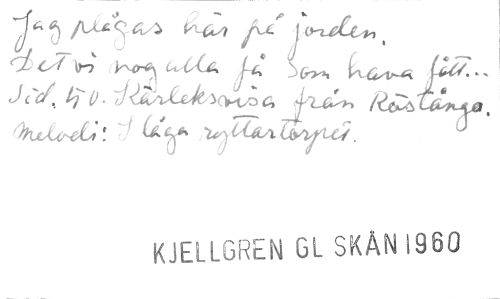 Jag plågas här på jorden.
Det vi nog alla få som hava fått...
Sid. 50. Kärleksvisa från Röstånga.
Melodi: I låga ryttartorpet.
KJELLGREN GL SKÅN 1960